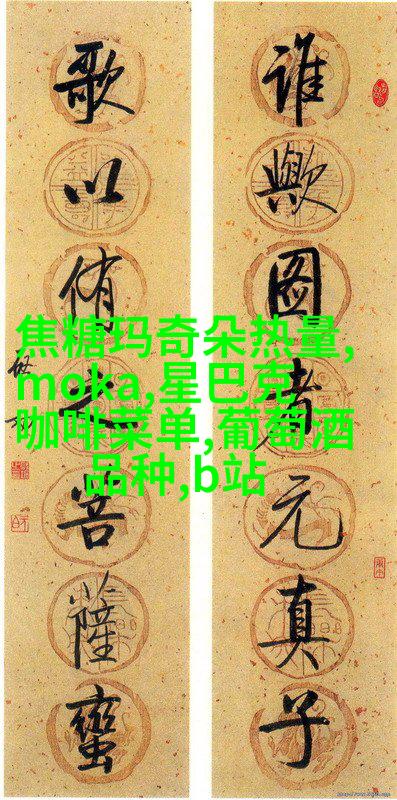 谁歟图者元真子
歌以侑之菩薩蠻
焦糖玛奇朵热量,
moka,星巴克
咖啡菜单,葡萄酒
品种,b站